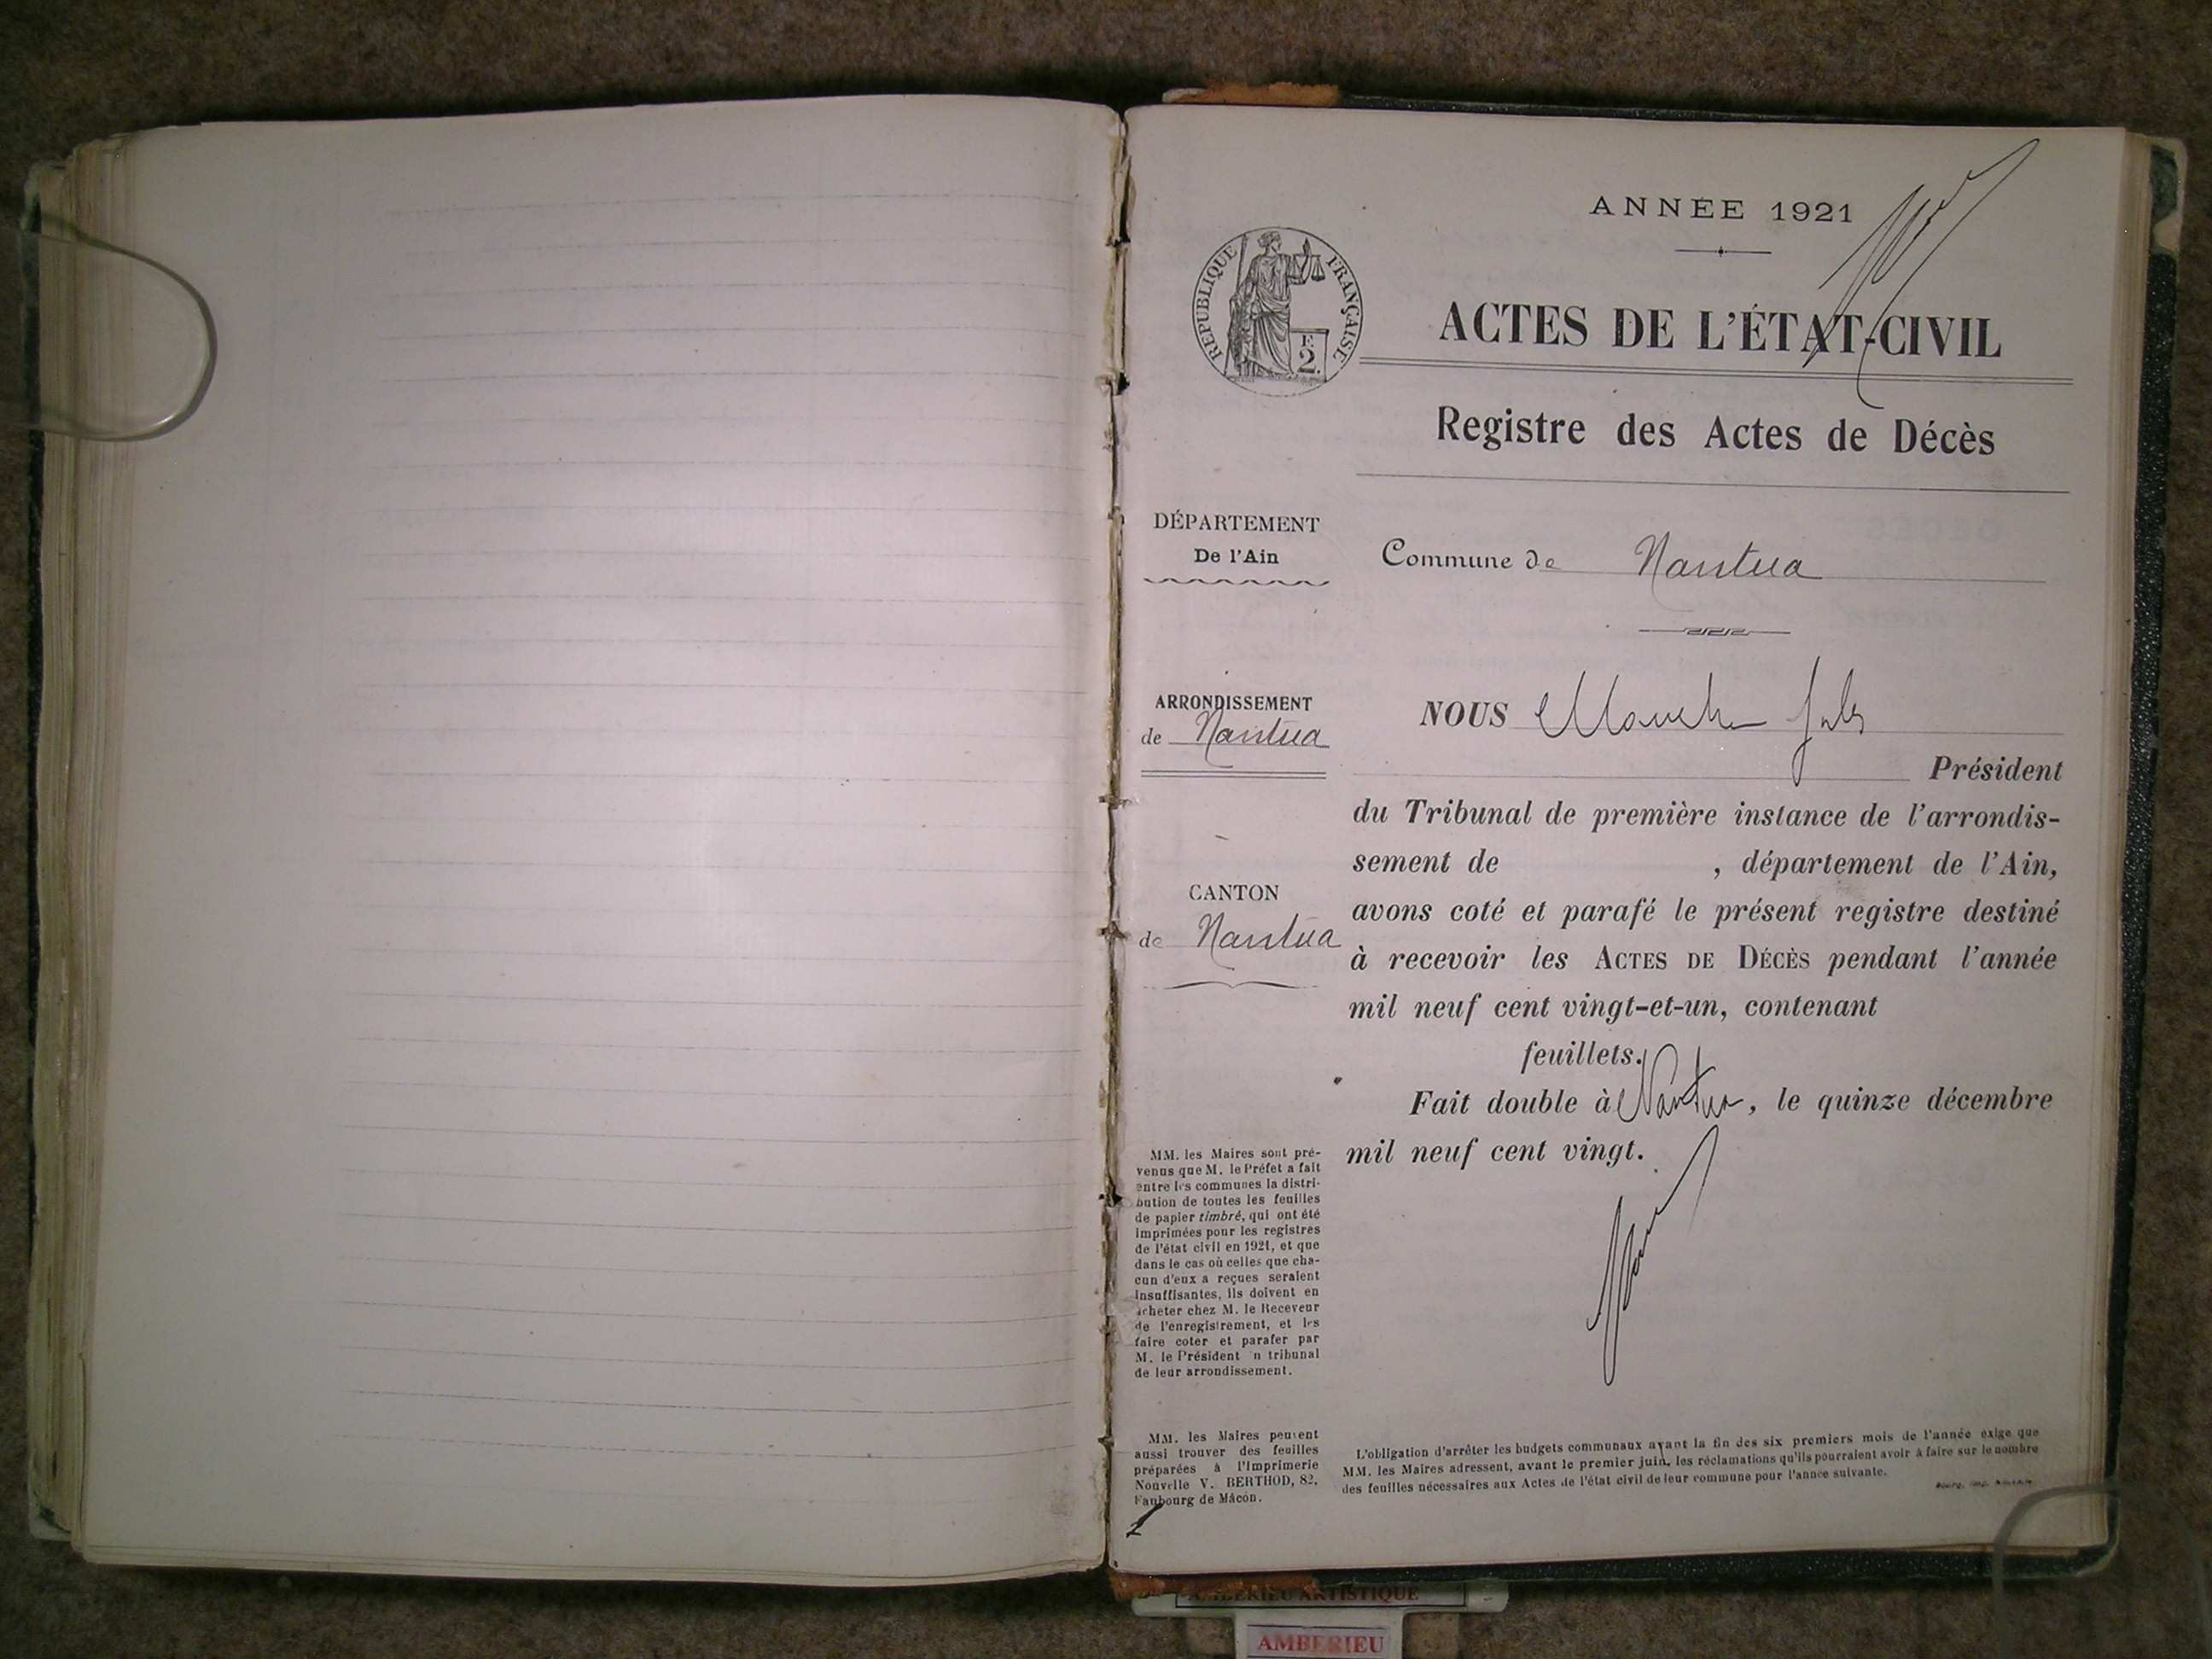 ANNÉE 1921
RÉPUBLIQUE FRANÇAISE
F.
2.
ACTES DE L'ÉTAT-CIVIL
Registre des Actes de Décès
DÉPARTEMENT
De l'Ain
Commune de Nantua
ARRONDISSEMENT
de Nantua
CANTON
de Nantua
MM. les Maires sont pré-
venus que M. le Préfet a fait
entre les communes la distri-
bution de toutes les feuilles
de papier timbré, qui ont été
imprimées pour les registres
de l'état civil en 1921, et que
dans le cas où celles que cha-
cun d'eux a reçues seraient
insuffisantes, ils doivent en
acheter chez M. le Receveur
de l'enregistrement, et les
faire coter et parafer par
M. le Président n tribunal
de leur arrondissement.
MM. les Maires peuvent
aussi trouver des feuilles
préparées à l'Imprimerie
Nouvelle V. BERTHOD, 82,
Faubourg de Mâcon.
1
NOUS Jules
Président
du Tribunal de première instance de l'arrondis-
sement de , département de l'Ain,
avons coté et parafé le présent registre destiné
à recevoir les ACTES DE DÉCÈS pendant l'année
mil neuf cent vingt-et-un, contenant
feuillets.
Fait double à Nantua, le quinze décembre
mil neuf cent vingt.
L'obligation d'arrêter les budgets communaux avant la fin des six premiers mois de l'année exige que
MM. les Maires adressent, avant le premier juin, les réclamations qu'ils pourraient avoir à faire sur le nombre
des feuilles nécessaires aux Actes de l'état civil de leur commune pour l'année suivante.
Bourg, imp.
AMBERIEU ARTISTIQUE
AMBERIEU